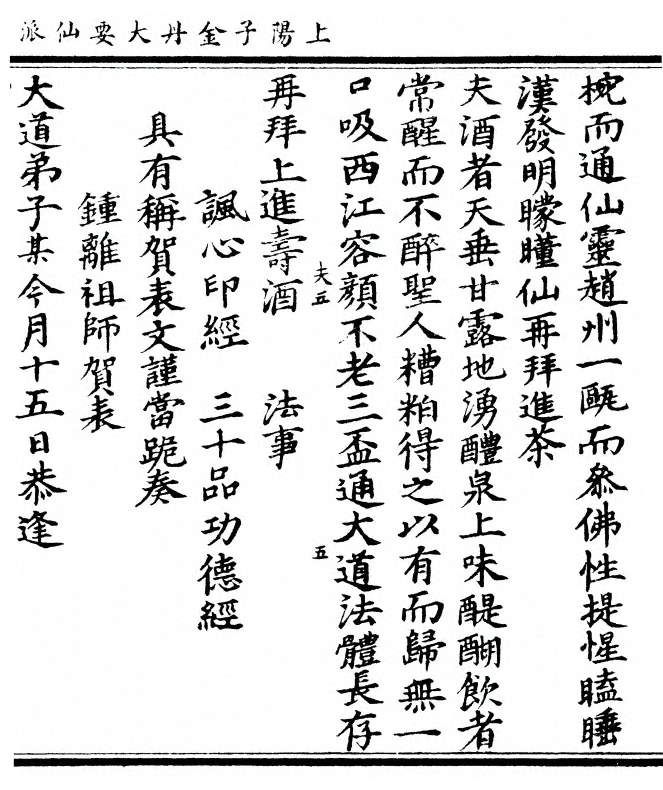 上陽子金丹大要仙派
椀而通仙靈趙州一甌而叅佛性提惺瞌睡
漢發明矇矓仙再拜進茶
夫酒者天垂甘露地湧醴泉上味醍醐飲者
常醒而不醉聖人糟粕得之以有而歸無一
口吸西江容顏不老三盃通大道法體長存
夫五
五
再拜上進壽酒　法事
諷心印經　三十品功德經
具有稱賀表文謹當跪奏
鍾離祖師賀表
大道弟子某今月十五日恭逢